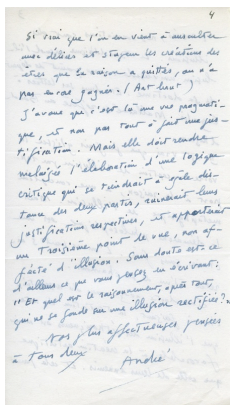 4
Si vrai que l'on en vient à ausculter
avec délices et stupeur les créations des
êtres que la raison a quittés, on n'a
pas encore gagné. (Art brut)
J'avoue que c'est là une vue pragmati-
que, et non pas tout à fait une jus-
tification. Mais elle doit rendre
malaisée l'élaboration d'une logique
critique qui se tiendrait à égale dis-
tance des deux pertes, ruinerait leurs
justifications respectives, et apporterait
un Troisième point de vue, non af-
fecté d'illusion. Sans doute est-ce
d'ailleurs ce que vous pensez en écrivant :
"Et quel est le raisonnement, après tout,
qui ne se fonde sur une illusion rectifiée ?"
Nos plus affectueuses pensées
à tous deux
André